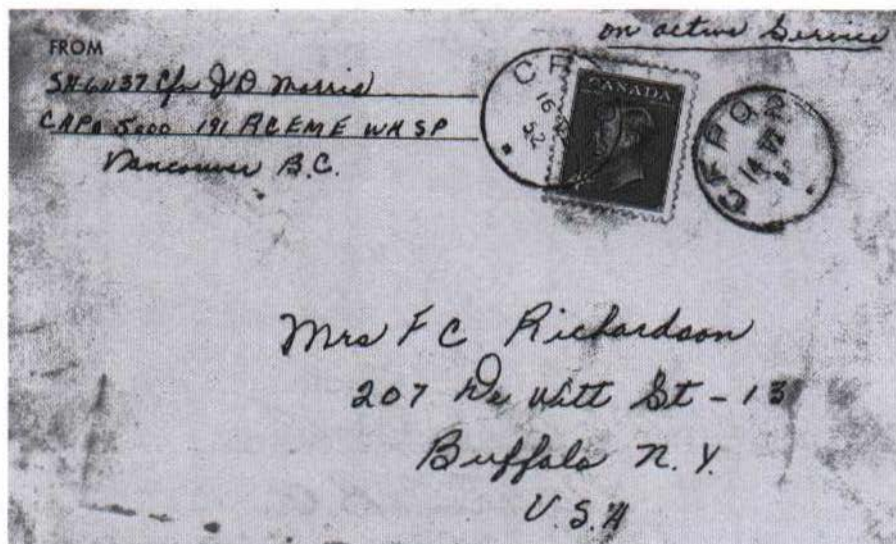 on active Service
FROM
SH61137 Cfn J D Morris
CAPO 5000 191 RCEME WKSP
Vancouver B.C.
CANADA
16
52
CAPO
14
Mrs F C Richardson
207 De Witt St - 13
Buffalo N.Y.
U.S.A